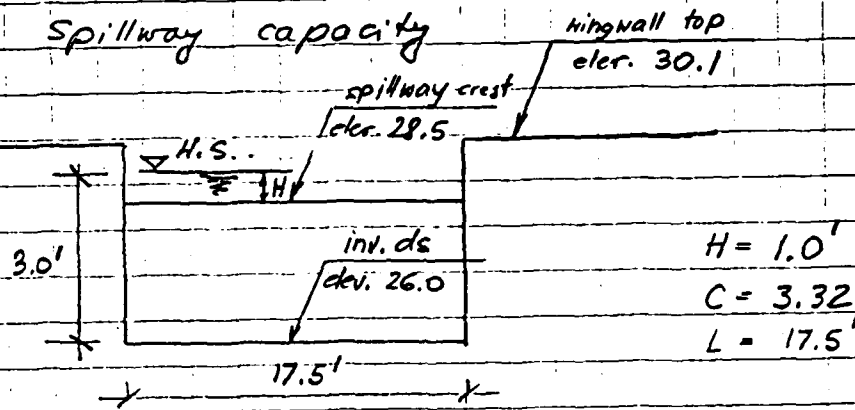 Spillway capacity
wingwall top
elev. 30.1
spillway crest
elev. 28.5
H.S..
H
3.0'
inv. ds
elev. 26.0
H = 1.0'
C = 3.32
L = 17.5'
17.5'